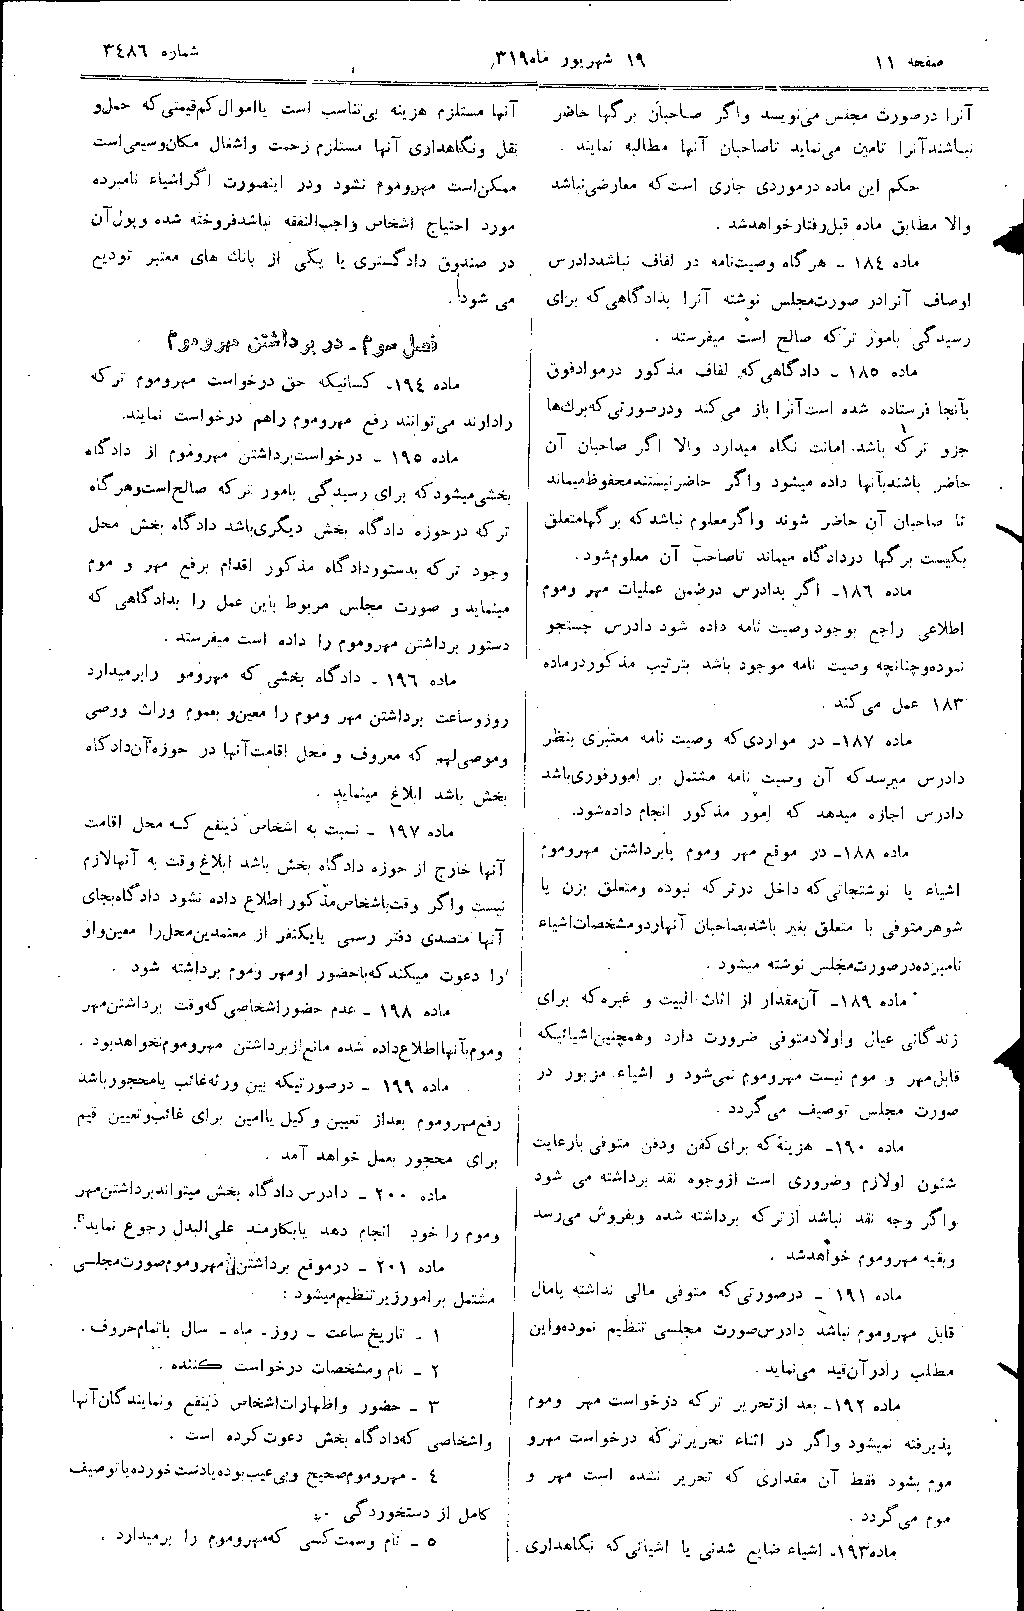 صفحه ۱۱
۱۹ شهریور ماه ۱۳۱۹
شماره ۳٤۸٦
آنرا درصورت مجلس می‌نویسد واگر صاحبان برگها حاضر
نباشند آنرا تامین می‌نماید تاصاحبان آنها مطالبه نمایند .
حکم این ماده درموردی جاری است که معارضی نباشد
والا مطابق ماده قبل رفتارخواهدشد .
ماده ۱۸٤ - هرگاه وصیت‌نامه در لفاف نباشد دادرس
اوصاف آنرادر صورت‌مجلس نوشته آنرا بدادگاهی که برای
رسیدگی بامور ترکه صالح است میفرستد .
ماده ۱۸۵ - دادگاهی‌که لفاف مذکور درموادفوق
بآنجا فرستاده شده است آنرا باز می‌کند ودرصورتی که برك‌ها
جزو ترکه باشد امانت نگاه میدارد والا اگر صاحبان آن
حاضر باشند بآنها داده میشود واگر حاضر نیستند محفوظ میماند
تا صاحبان آن حاضر شوند واگر معلوم نباشد که برگها متعلق
بکیست برگها دردادگاه میماند تاصاحب آن معلوم شود .
ماده ۱۸٦- اگر بدادرس درضمن عملیات مهر وموم
اطلاعی راجع بوجود وصیت نامه داده شود دادرس جستجو
نموده وچنانچه وصیت نامه موجود باشد بترتیب مذکور درماده
۱۸۳ عمل می‌کند .
ماده ۱۸۷- در مواردی‌که وصیت نامه معتبری بنظر
دادرس میرسد که آن وصیت نامه مشتمل بر امورفوری باشد
دادرس اجازه میدهد که امور مذکور انجام داده شود.
ماده ۱۸۸- در موقع مهر وموم یابرداشتن مهروموم
اشیاء یا نوشتجاتی‌که داخل درترکه نبوده ومتعلق بزن یا
شوهر متوفی یا متعلق بغیر باشد بصاحبان آنهارد و مشخصات اشیاء
نامبرده درصورت‌مجلس نوشته میشود .
ماده ۱۸۹- آن‌مقدار از اثاث البیت و غیره که برای
زندگانی عیال واولاد متوفی ضرورت دارد وهمچنین اشیائیکه
قابل مهر و موم نیست مهروموم نمی‌شود و اشیاء مزبور در
صورت مجلس توصیف می‌گردد .
ماده ۱۹۰- هزینهٔ که برای کفن ودفن متوفی بارعایت
شئون اولازم وضروری است ازوجوه نقد برداشته می شود
واگر وجه نقد نباشد از ترکه برداشته شده وبفروش می‌رسد
وبقیه مهروموم خواهدشد .
ماده ۱۹۱ - درصورتی‌که متوفی مالی نداشته یامال
قابل مهروموم نباشد دادرس صورت مجلسی تنظیم نموده واین
مطلب رادرآن قید می‌نماید .
ماده ۱۹۲- بعد ازتحریر ترکه درخواست مهر وموم
پذیرفته نمیشود واگر در اثناء تحریر ترکه درخواست مهرو
موم بشود فقط آن مقداری که تحریر نشده است مهر و
موم می‌گردد .
ماده۱۹۳- اشیاء ضایع شدنی یا اشیائی‌که نگاهداری
آنها مستلزم هزینه بی‌تناسب است یااموال کم‌قیمتی که حمل و
نقل ونگاهداری آنها مستلزم زحمت واشغال مکان‌وسیعی است
ممکن است مهروموم نشود ودر اینصورت اگر اشیاء نامبرده
مورد احتیاج اشخاص واجب‌النفقه نباشد فروخته شده وپول‌آن
در صندوق دادگستری یا یکی از بانك های معتبر تودیع
می شود .
فصل سوم - در برداشتن مهروموم
ماده ۱۹٤- کسانیکه حق درخواست مهروموم ترکه
رادارند می‌توانند رفع مهروموم راهم درخواست نمایند.
ماده ۱۹۵ - درخواست برداشتن مهروموم از دادگاه
بخشی میشود که برای رسیدگی بامور ترکه صالح است وهرگاه
ترکه درحوزه دادگاه بخش دیگری باشد دادگاه بخش محل
وجود ترکه بدستوردادگاه مذکور اقدام برفع مهر و موم
مینماید و صورت مجلس مربوط باین عمل را بدادگاهی که
دستور برداشتن مهروموم را داده است میفرستد .
ماده ۱۹٦ - دادگاه بخشی که مهرومو رابرمیدارد
روز وساعت برداشتن مهر وموم را معین‌و بعموم وراث ووصی
وموصی‌لهم که معروف و محل اقامت آنها در حوزه آن‌دادگاه
بخش باشد ابلاغ مینماید .
ماده ۱۹۷ - نسبت به اشخاص ذینفع کـه محل اقامت
آنها خارج از حوزه دادگاه بخش باشد ابلاغ وقت به آنها لازم
نیست واگر وقت باشخاص مذکور اطلاع داده نشود دادگاه بجای
آنها متصدی دفتر رسمی یایکنفر از معتمدین محل را معین‌واو
را دعوت میکند که باحضور او مهر وموم برداشته شود .
ماده ۱۹۸ - عدم حضور اشخاصی که وقت برداشتن مهر
وموم بآنها اطلاع داده شده مانع از برداشتن مهروموم نخواهدبود .
ماده ۱۹۹ - درصورتیکه بین ورثه غائب یامحجور باشد
رفع مهروموم بعداز تعیین وکیل یاامین برای غائب و تعیین قیم
برای محجور بعمل خواهد آمد .
ماده ۲۰۰ - دادرس دادگاه بخش میتواند برداشتن مهر
وموم را خود انجام دهد یابکارمند علی البدل رجوع نماید.
ماده ۲۰۱ - درموقع برداشتن مهروموم صورت مجلسی
مشتمل بر امور زیر تنظیم میشود :
۱ - تاریخ ساعت - روز - ماه - سال باتمام حروف .
۲ - نام ومشخصات درخواست کننده .
۳ - حضور واظهارات اشخاص ذینفع ونمایندگان آنها
واشخاصی که دادگاه بخش دعوت کرده است .
٤ - مهروموم صحیح وبی‌عیب بوده یادست خورده باتوصیف
کامل از دستخوردگی .
۵ - نام وسمت کسی که مهروموم را برمیدارد .